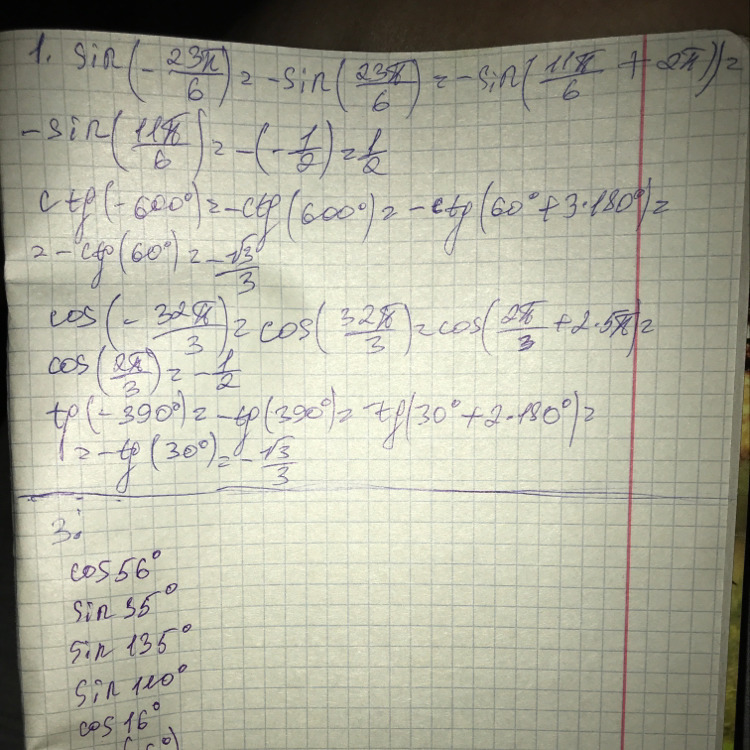 1. sin(-23π/6) = -sin(23π/6) = -sin(11π/6 + 2π) =
-sin(11π/6) = -(-1/2) = 1/2
ctg(-600°) = -ctg(600°) = -ctg(60° + 3·180°) =
= -ctg(60°) = -√3/3
cos(-32π/3) = cos(32π/3) = cos(2π/3 + 2·5π) =
cos(2π/3) = -1/2
tg(-390°) = -tg(390°) = -tg(30° + 2·180°) =
= -tg(30°) = -√3/3
3.
cos 56°
sin 35°
sin 135°
sin 110°
cos 16°